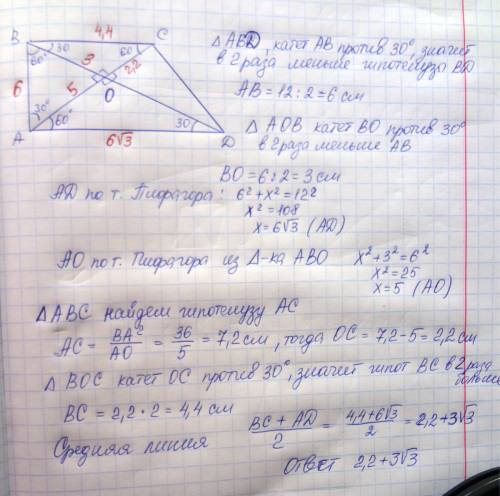 B 4,4 C
60° 30 3 60
6 5 2,2
O
30° 60° 30
A 6√3 D
Δ ABD, катет AB против 30°, значит
в 2 раза меньше гипотенузы BD
AB = 12 : 2 = 6 см
Δ AOB катет BO против 30°
в 2 раза меньше AB
BO = 6 : 2 = 3 см
AD по т. Пифагора: 6² + x² = 12²
x² = 108
x = 6√3 (AD)
AO по т. Пифагора из Δ-ка ABO x² + 3² = 6²
x² = 25
x = 5 (AO)
Δ ABC найдем гипотенузу AC
AC = BA²/AO = 36/5 = 7,2 см, тогда OC = 7,2 - 5 = 2,2 см
Δ BOC катет OC против 30°, значит гипот BC в 2 раза
больше
BC = 2,2 · 2 = 4,4 см
Средняя линия (BC + AD)/2 = (4,4 + 6√3)/2 = 2,2 + 3√3
Ответ 2,2 + 3√3